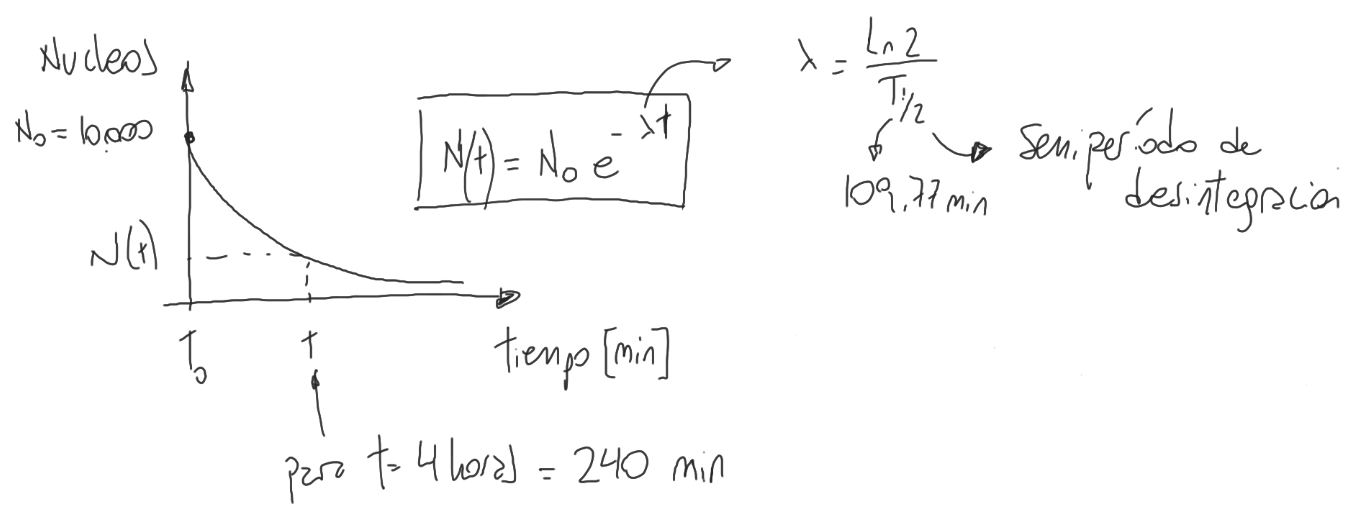 Nucleos
N₀ = 10.000
N(t)
t₀
t
tiempo [min]
para t = 4 horas = 240 min
N(t) = N₀ e^-λt
λ = Ln 2 / T1/2
109,77 min
Semiperíodo de
desintegracion